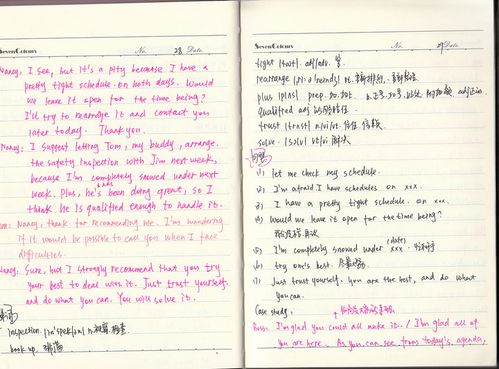 SevenColours No. 28 Date
Nancy: I see, but it's a pity because I have a
pretty tight schedule on both days. Would
we leave it open for the time being?
I'll try to rearrange it and contact you
later today. Thank you.
Nancy: I suggest letting Tom, my buddy, arrange
the safety inspection with Jim next week,
because I'm completely snowed under next
week. Plus, he's been doing great, so I
think he is qualified enough to handle it.
Tom: Nancy, thank for recommending me. I'm wondering
if it would be possible to call you when I face
difficulties.
Nancy: Sure, but I strongly recommend that you try
your best to deal with it. Just trust yourself.
and do what you can. You will solve it.
inspection n. 检查
book up
SevenColours No. 29 Date
tight adj/adv. 紧
rearrange vt. 重新排列
plus prep. 加
qualified adj
trust n/vi/vt. 信任
solve vt/vi 解决
(1) let me check my schedule.
(2) I'm afraid I have schedules on xxx.
(3) I have a pretty tight schedule on xxx.
(4) Would we leave it open for the time being?
(5) I'm completely snowed under xxx. (date)
(6) try one's best. 尽最
(7) Just trust yourself. you are the test, and do what
you can.
Case study.
Boss: I'm glad you could all make it. / I'm glad all of
you are here. As you can see from today's agenda,